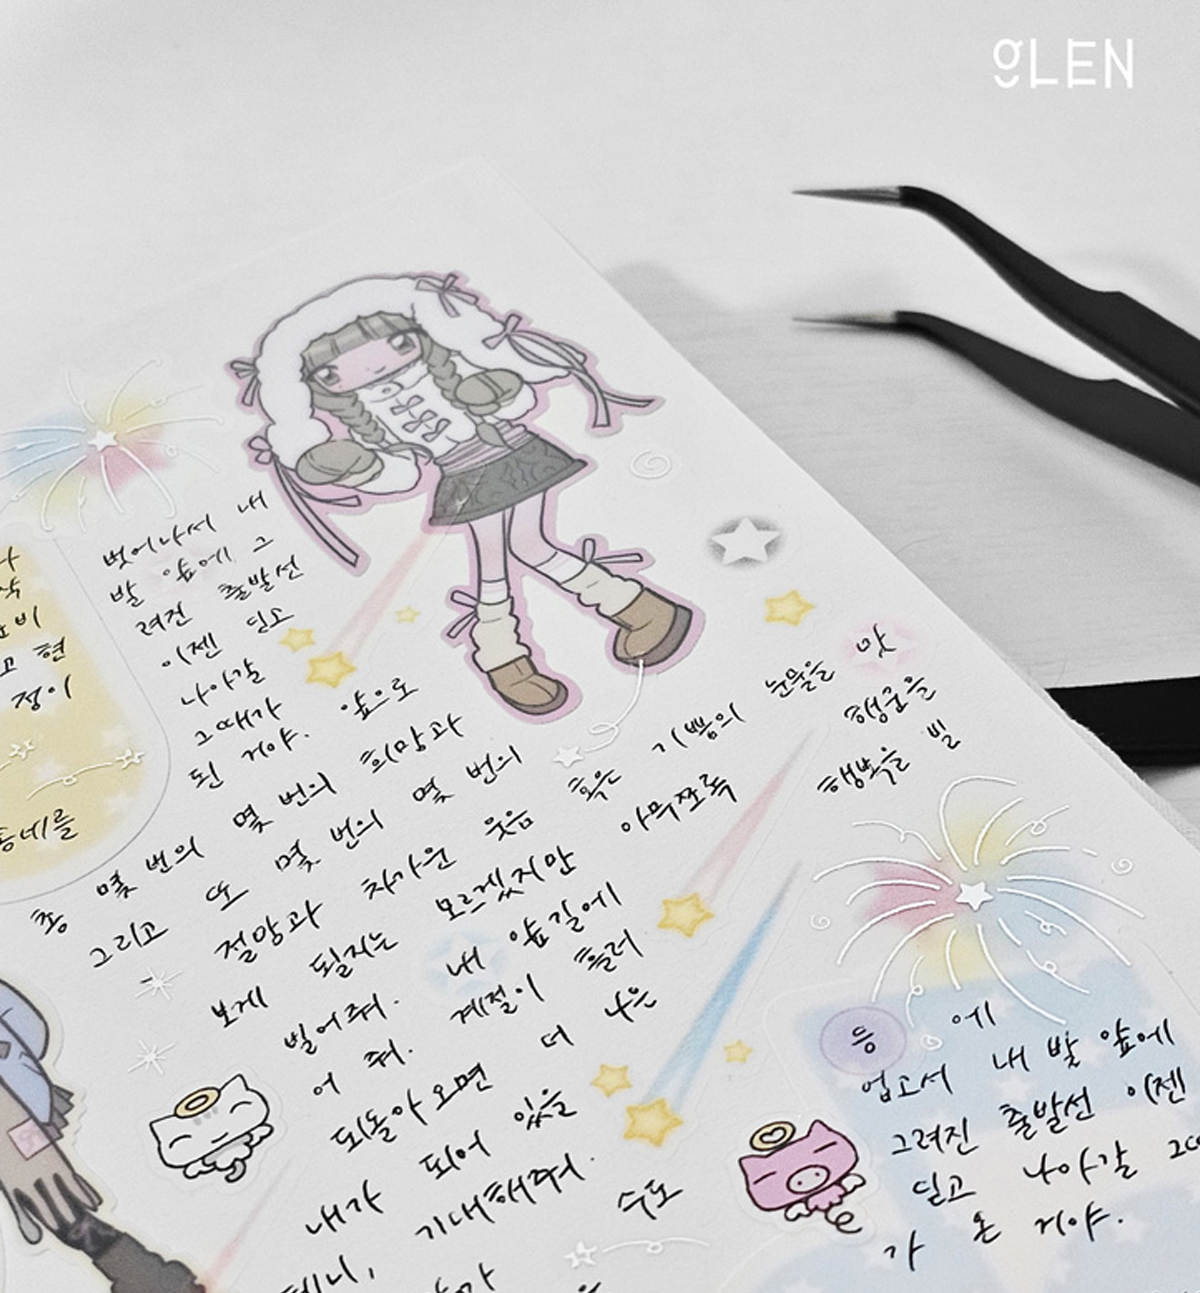 gLEN
벗어나서 내
발 앞에 그
려진 출발선
이젠 딛고
나아갈
그때가
된 거야. 앞으로
총 몇 번의 몇 번의 희망과
그리고 또 몇 번의 몇 번의
절망과 차가운 웃음 혹은 기쁨의 눈물을 맛
보게 될지는 모르겠지만 아무쪼록 행운을
빌어줘. 내 앞길에 행복을 빌
어 줘. 계절이 흘러
되돌아오면 더 나은
내가 되어 있을
기대해줘.
수도
고 현
정이
동네를
등 에
업고서 내 발 앞에
그려진 출발선 이젠
딛고 나아갈 그때
가 온 거야.